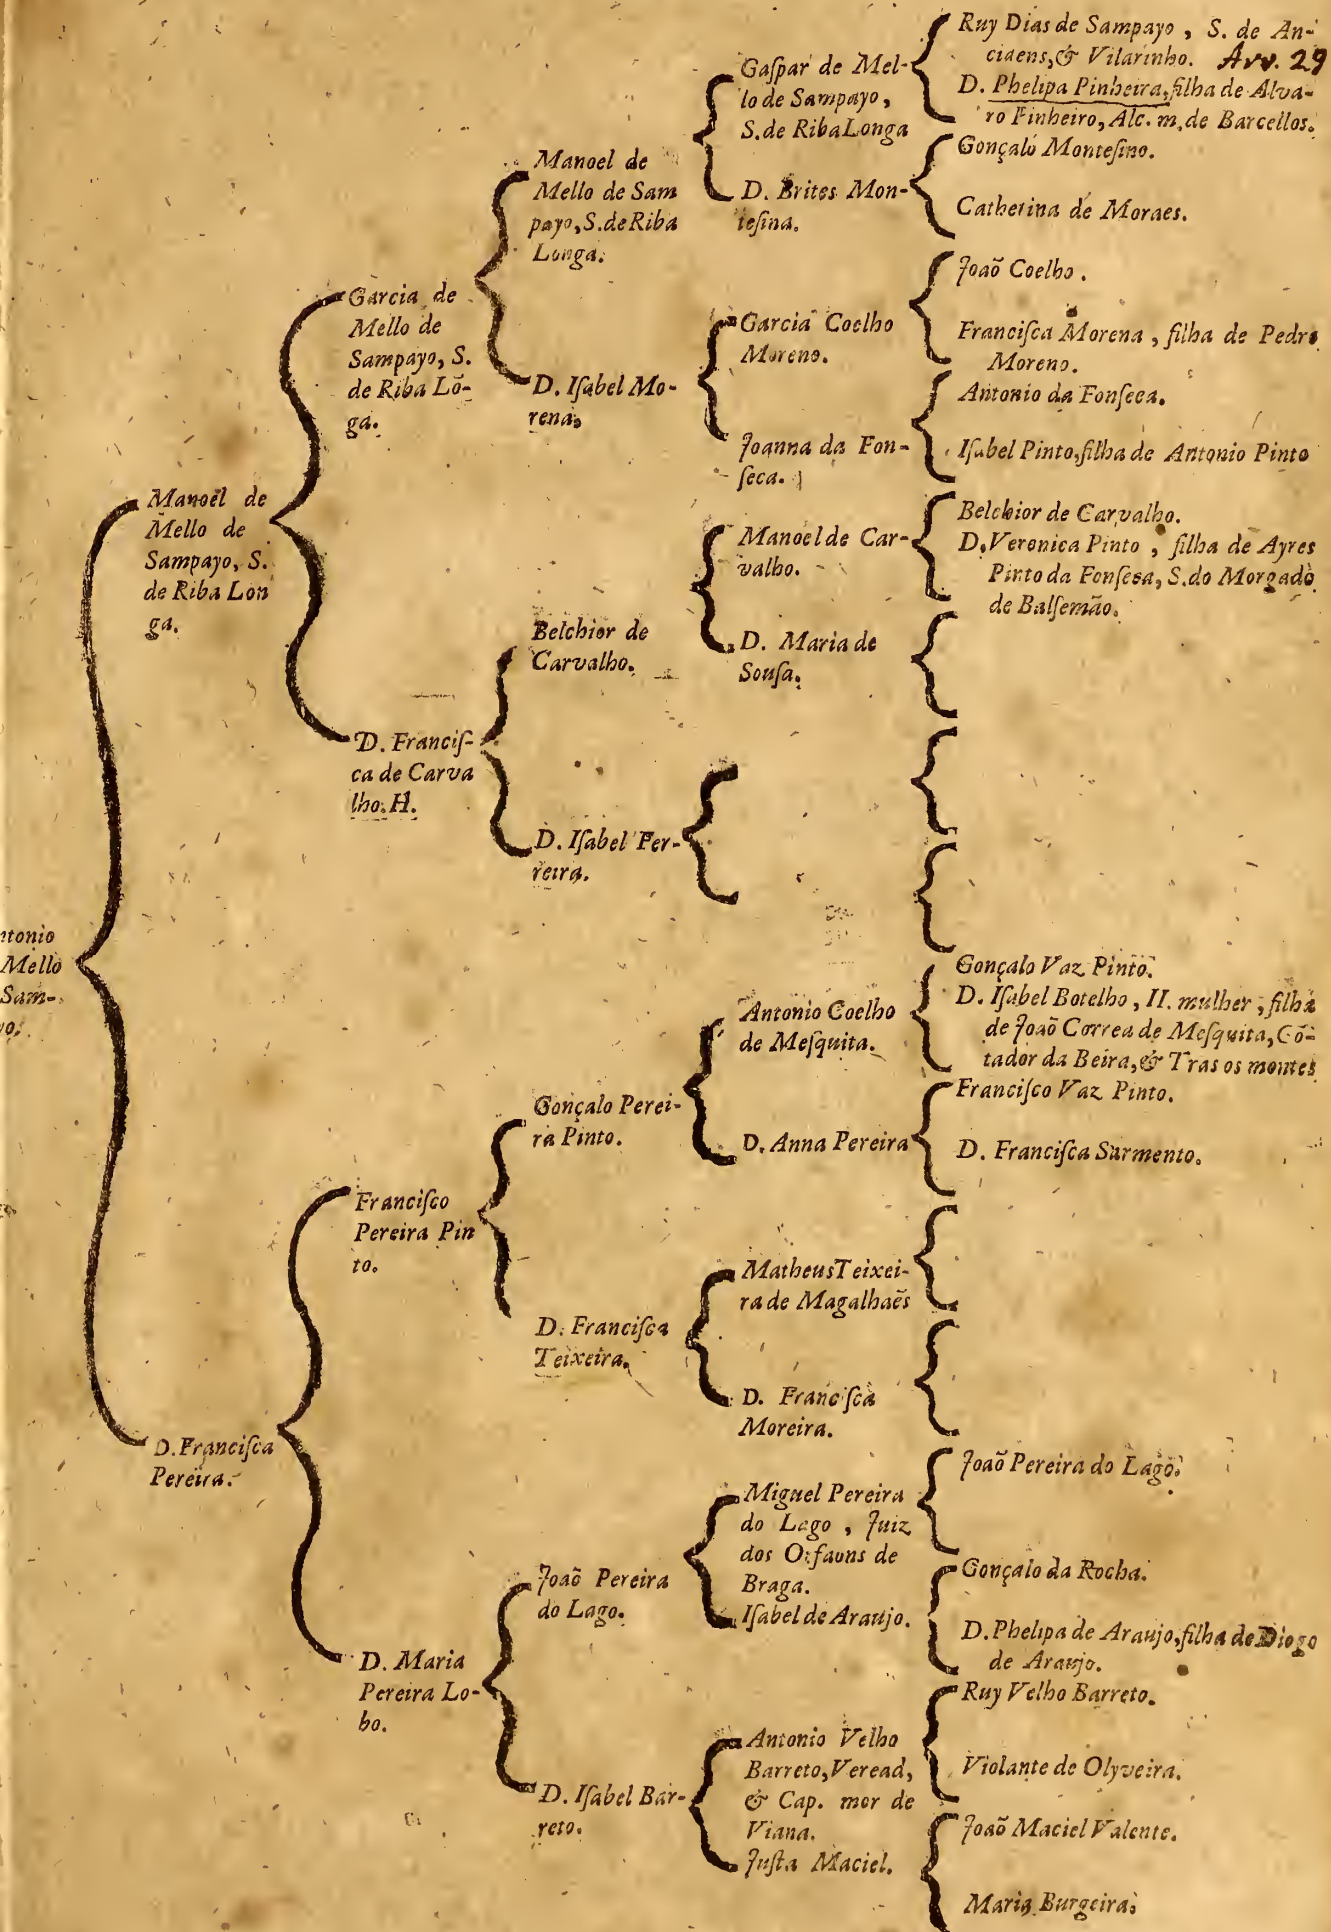 ntonio
Mello
Sam-
yo.
Manoel de
Mello de
Sampayo, S.
de Riba Lon
ga.
D. Franciſca
Pereira.
Garcia de
Mello de
Sampayo, S.
de Riba Lõ-
ga.
D. Franciſ-
ca de Carva
lho. H.
Franciſco
Pereira Pin
to.
D. Maria
Pereira Lo-
bo.
Manoel de
Mello de Sam
payo, S. de Riba
Longa.
D. Iſabel Mo-
rena.
Belchior de
Carvalho.
D. Iſabel Fer-
reira.
Gonçalo Perei-
ra Pinto.
D. Franciſca
Teixeira.
Joaõ Pereira
do Lago.
D. Iſabel Bar-
reto.
Gaſpar de Mel-
lo de Sampayo,
S. de Riba Longa
D. Brites Mon-
teſina.
Garcia Coelho
Moreno.
Joanna da Fon-
ſeca.
Manoel de Car-
valho.
D. Maria de
Souſa.
Antonio Coelho
de Meſquita.
D. Anna Pereira
Matheus Teixei-
ra de Magalhaẽs
D. Franciſca
Moreira.
Miguel Pereira
do Lago, Juiz
dos Orfaons de
Braga.
Iſabel de Araujo.
Antonio Velho
Barreto, Veread,
& Cap. mor de
Viana.
Juſta Maciel.
Ruy Dias de Sampayo, S. de An-
ciaens, & Vilarinho. Arv. 29
D. Phelipa Pinheira, filha de Alva-
ro Pinheiro, Alc. m. de Barcellos.
Gonçalo Monteſino.
Catherina de Moraes.
Joaõ Coelho.
Franciſca Morena, filha de Pedro
Moreno.
Antonio da Fonſeca.
Iſabel Pinto, filha de Antonio Pinto
Belchior de Carvalho.
D. Veronica Pinto, filha de Ayres
Pinto da Fonſeca, S. do Morgado
de Balſemão.
Gonçalo Vaz Pinto.
D. Iſabel Botelho, II. mulher, filha
de Joaõ Correa de Meſquita, Cõ-
tador da Beira, & Tras os montes
Franciſco Vaz Pinto.
D. Franciſca Sarmento.
Joaõ Pereira do Lago.
Gonçalo da Rocha.
D. Phelipa de Araujo, filha de Diogo
de Araujo.
Ruy Velho Barreto.
Violante de Olyveira.
Joaõ Maciel Valente.
Maria Burgeira.